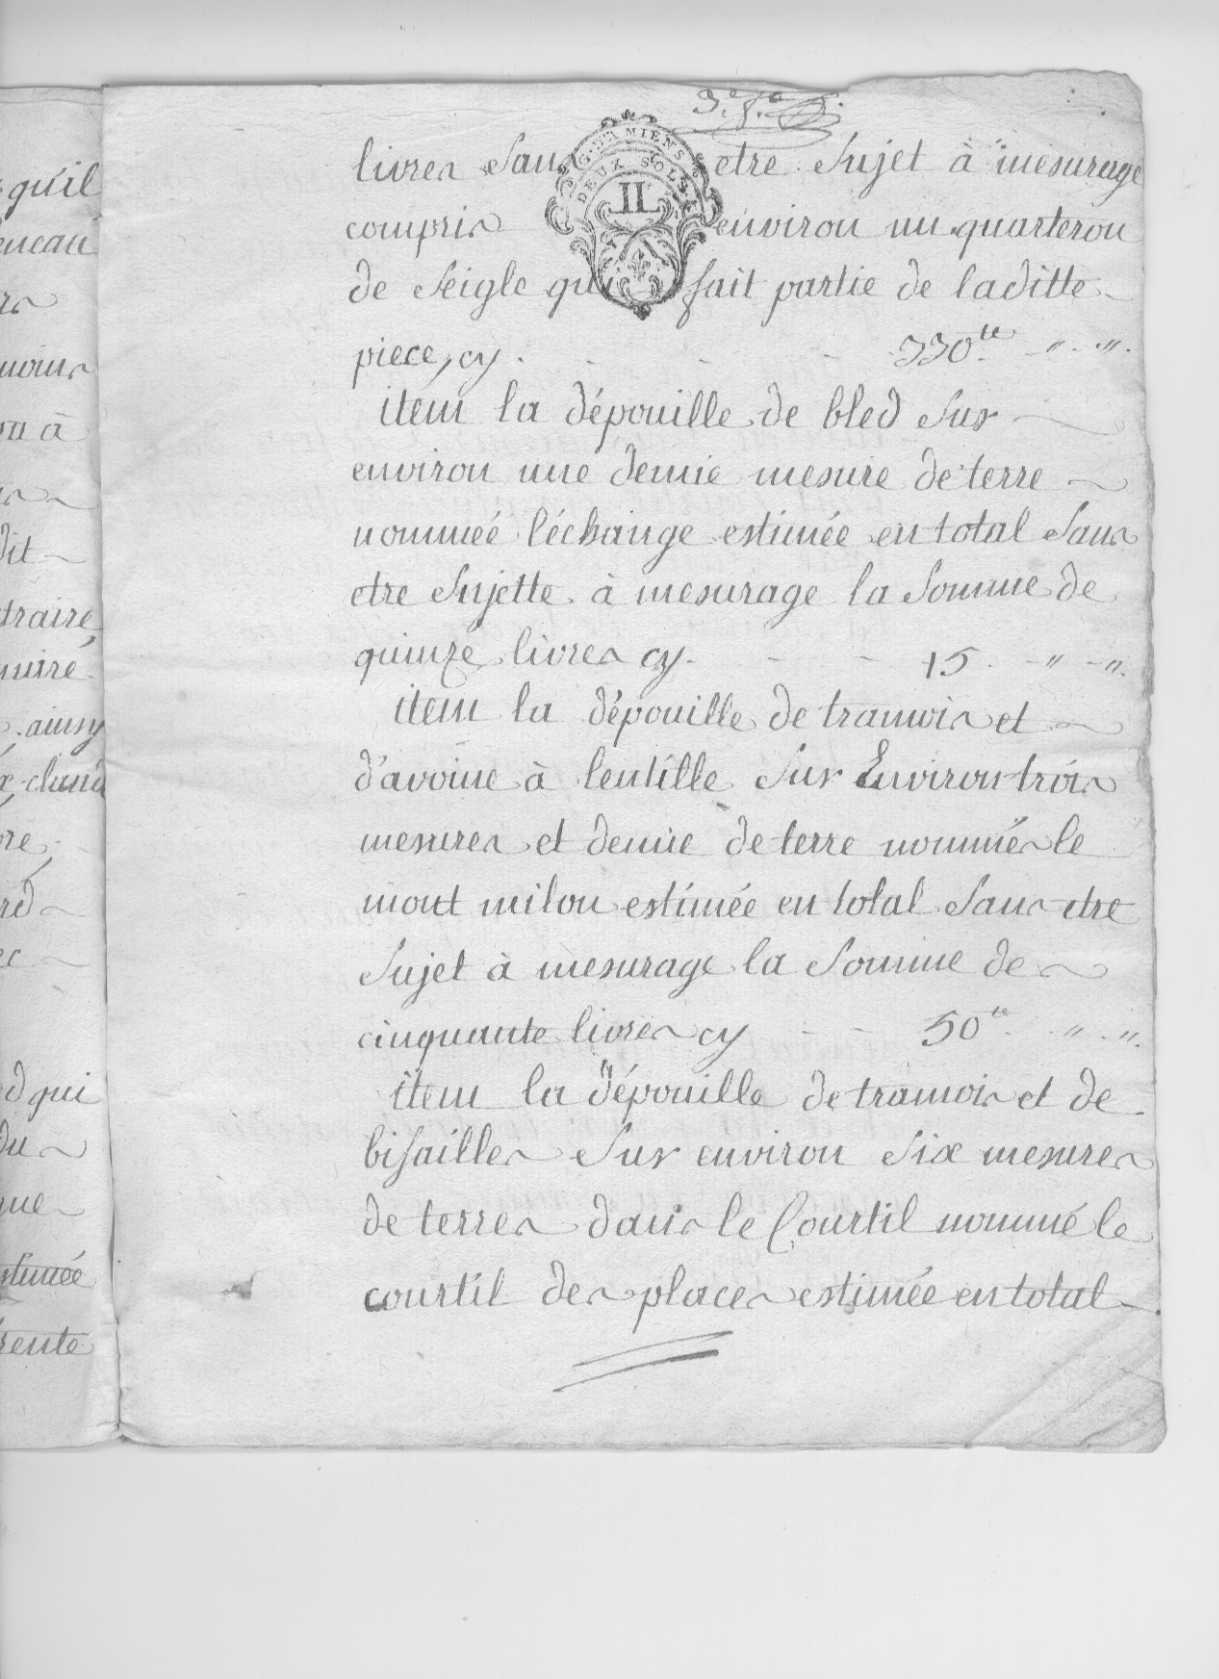 qu'il
traire
ainsy
d qui
du
que
estimée
trente
3.e f.e
G. D'AMIENS
DEUX SOLS
II
livres Sans etre Sujet à mesurage
compris environ un quarteron
de Seigle qui fait partie de laditte
piece, cy . - - - 330.lt - " - ".
item la dépouille de bled Sur
environ une demie mesure de terre
nommeé l'échange estimée en total Sans
etre Sujette à mesurage la Somme de
quinze livres cy. - - 15. - " - ".
item la dépouille de tramois et
d'avoine à lentille Sur Environ trois
mesures et demie de terre nommés le
mont milon estimée en total Sans etre
Sujet à mesurage la Somme de
cinquante livres cy - - 50.lt " . ".
item la dépouille de tramois et de
bisailles Sur environ Six mesures
de terres dans le Courtil nommé le
courtil des places estimée en total